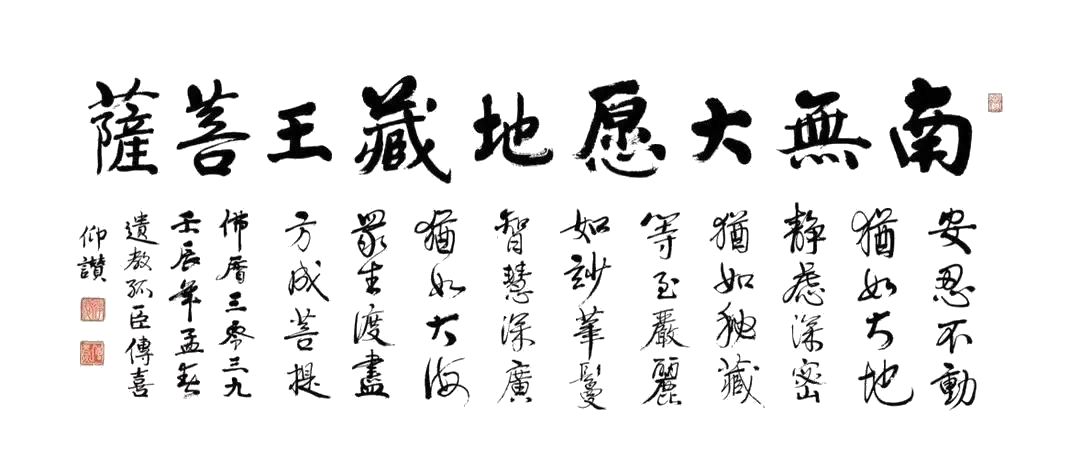 南無大愿地藏王菩薩
安忍不動
猶如大地
静慮深密
猶如秘藏
等至嚴麗
如妙華鬘
智慧深廣
猶如大海
眾生渡盡
方成菩提
佛曆三零三九
壬辰年孟春
遺教孤臣傳喜
仰讃